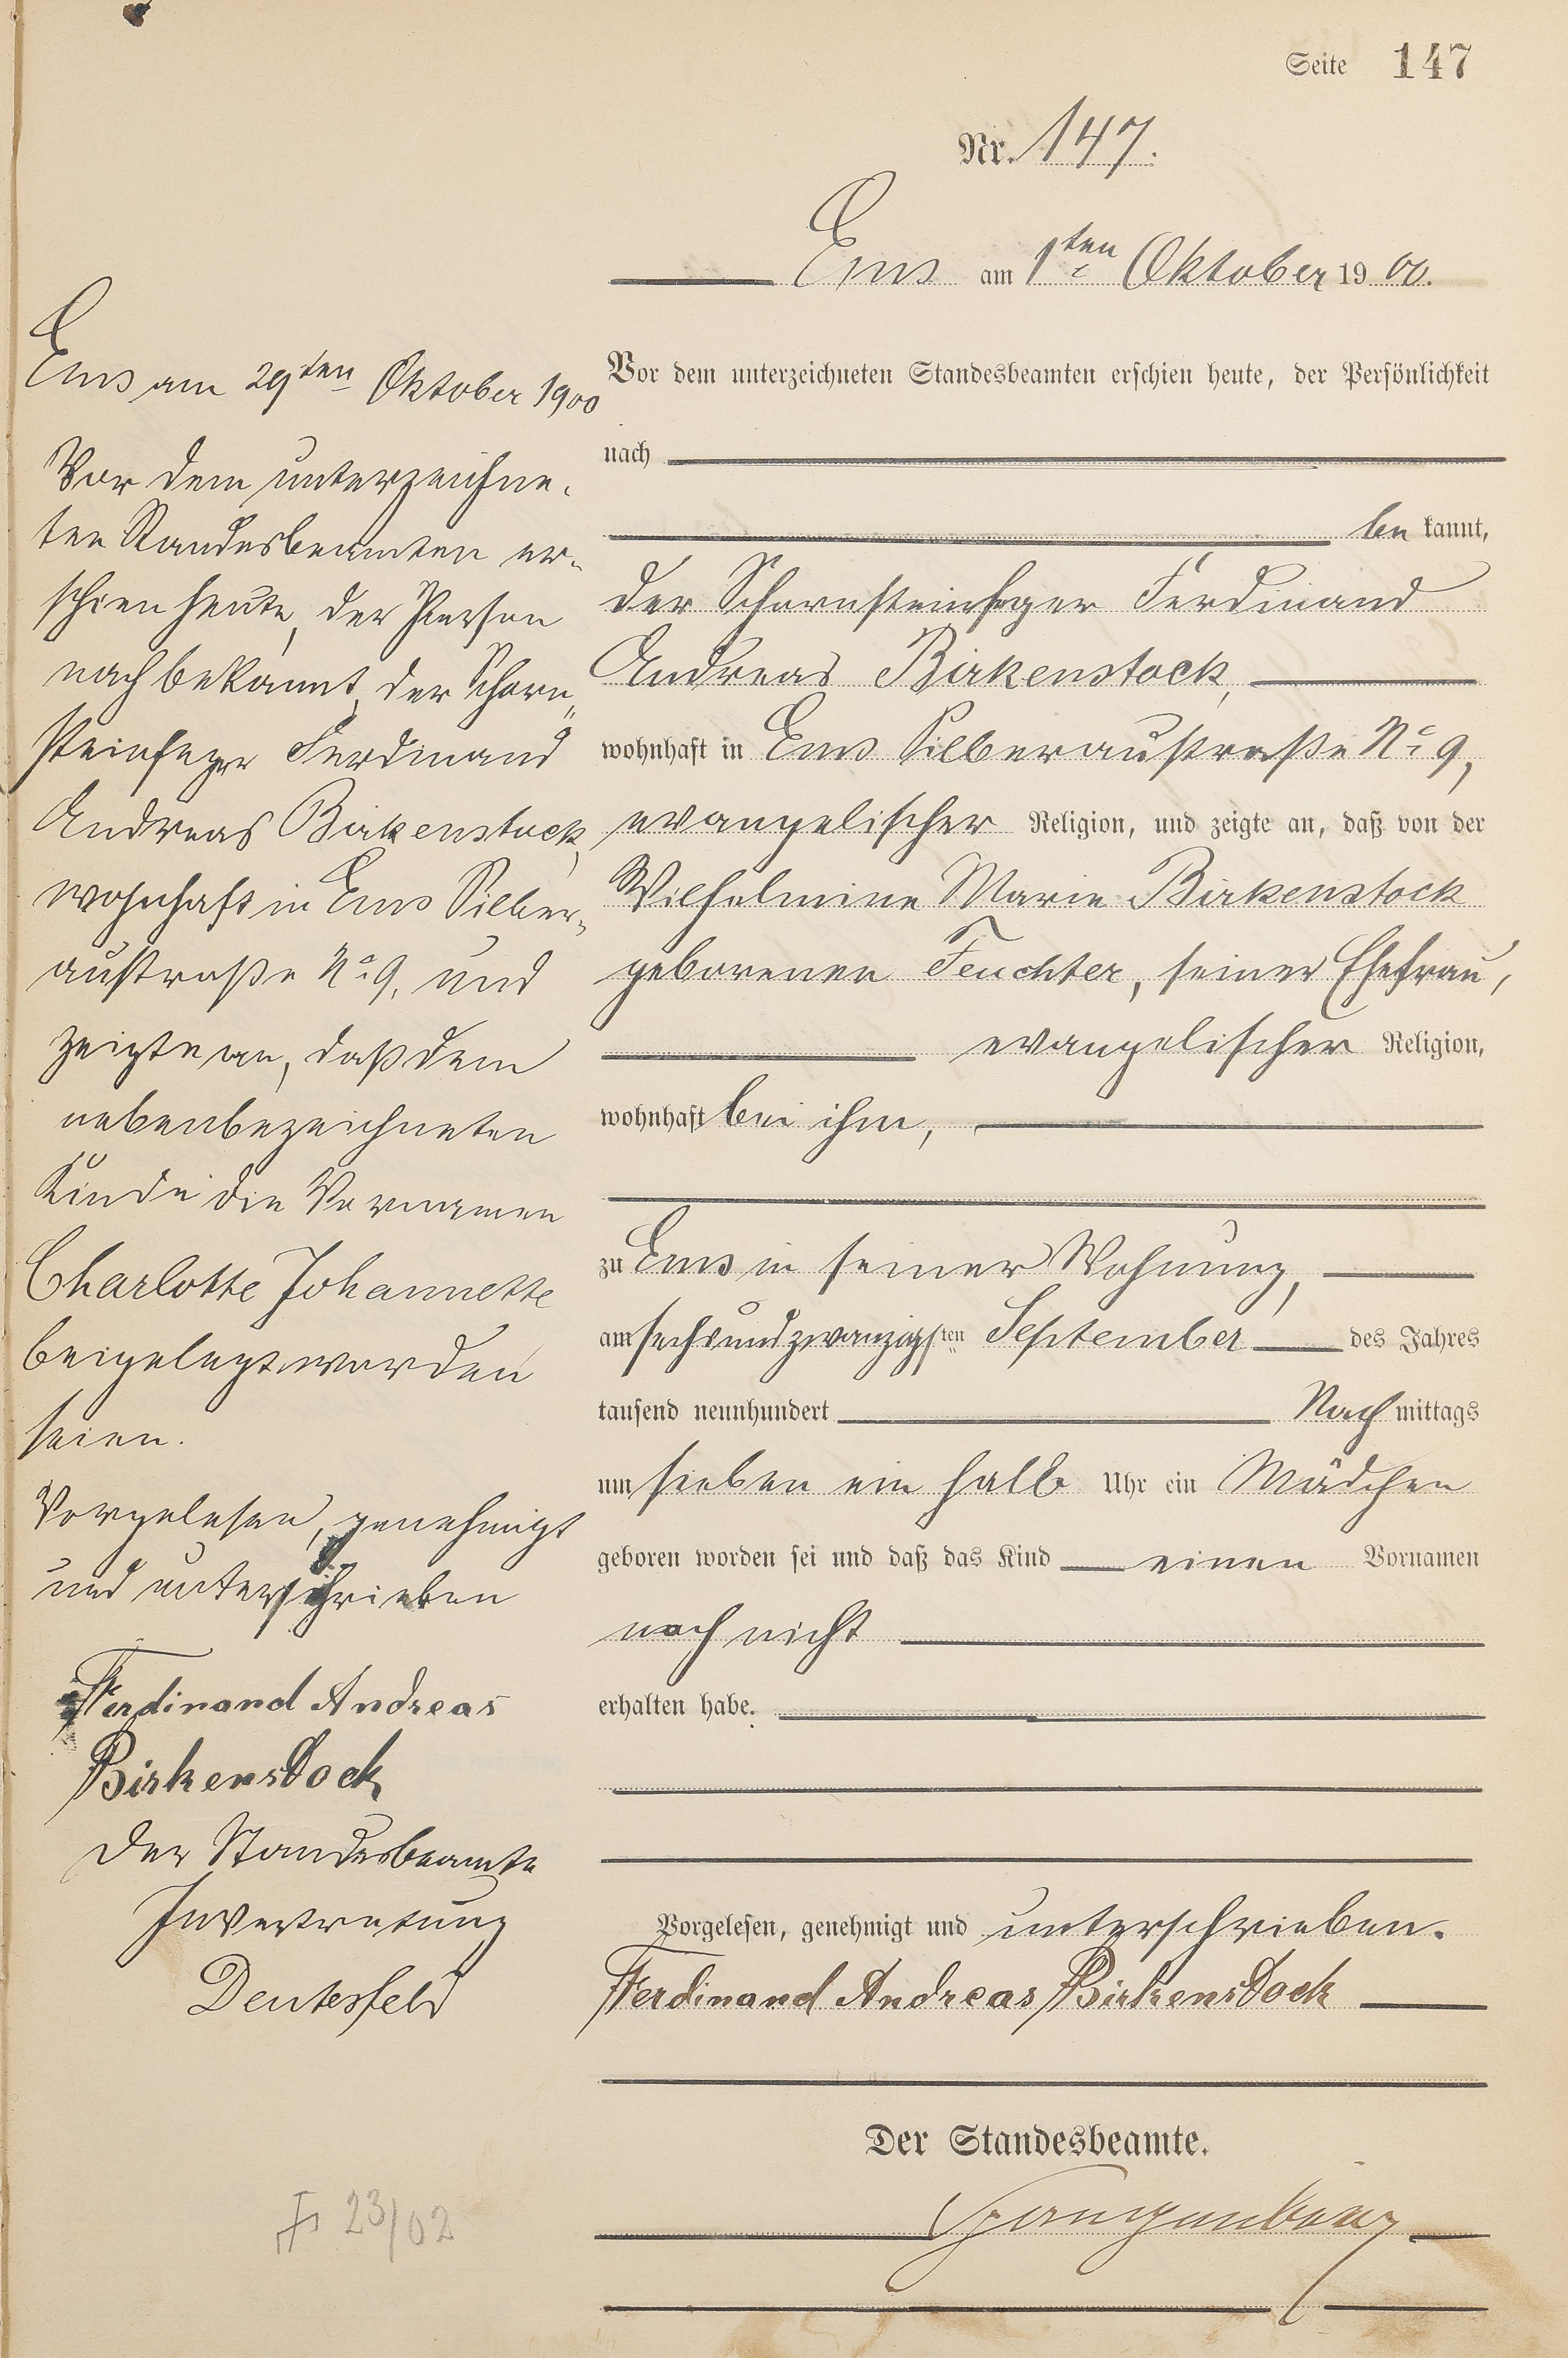 Seite 147
Nr. 147.
Ems am 1ten Oktober 1900.
Vor dem unterzeichneten Standesbeamten erschien heute, der Persönlichkeit
nach
be kannt,
der Schornsteinfeger Ferdinand
Andreas Birkenstock,
wohnhaft in Ems Silberaustraße No 9,
evangelischer Religion, und zeigte an, daß von der
Wilhelmine Marie Birkenstock
geborenen Feuchter, seiner Ehefrau,
evangelischer Religion,
wohnhaft bei ihm,
zu Ems in seiner Wohnung,
am sechsundzwanzigsten September des Jahres
tausend neunhundert Nach mittags
um sieben ein halb Uhr ein Mädchen
geboren worden sei und daß das Kind einen Vornamen
noch nicht
erhalten habe.
Vorgelesen, genehmigt und unterschrieben.
Ferdinand Andreas Birkenstock
Der Standesbeamte.
Ems am 29ten Oktober 1900
Vor dem unterzeichne-
ten Standesbeamten er-
schien heute, der Person
nach bekannt, der Schorn-
steinfeger Ferdinand
Andreas Birkenstock,
wohnhaft in Ems Silber-
austraße No 9, und
zeigte an, daß dem
nebenbezeichneten
Kinde die Vornamen
Charlotte Johannette
beigelegt worden
seien.
Vorgelesen, genehmigt
und unterschrieben
Ferdinand Andreas
Birkenstock
Der Standesbeamte
In Vertretung
Deutesfeld
23/02